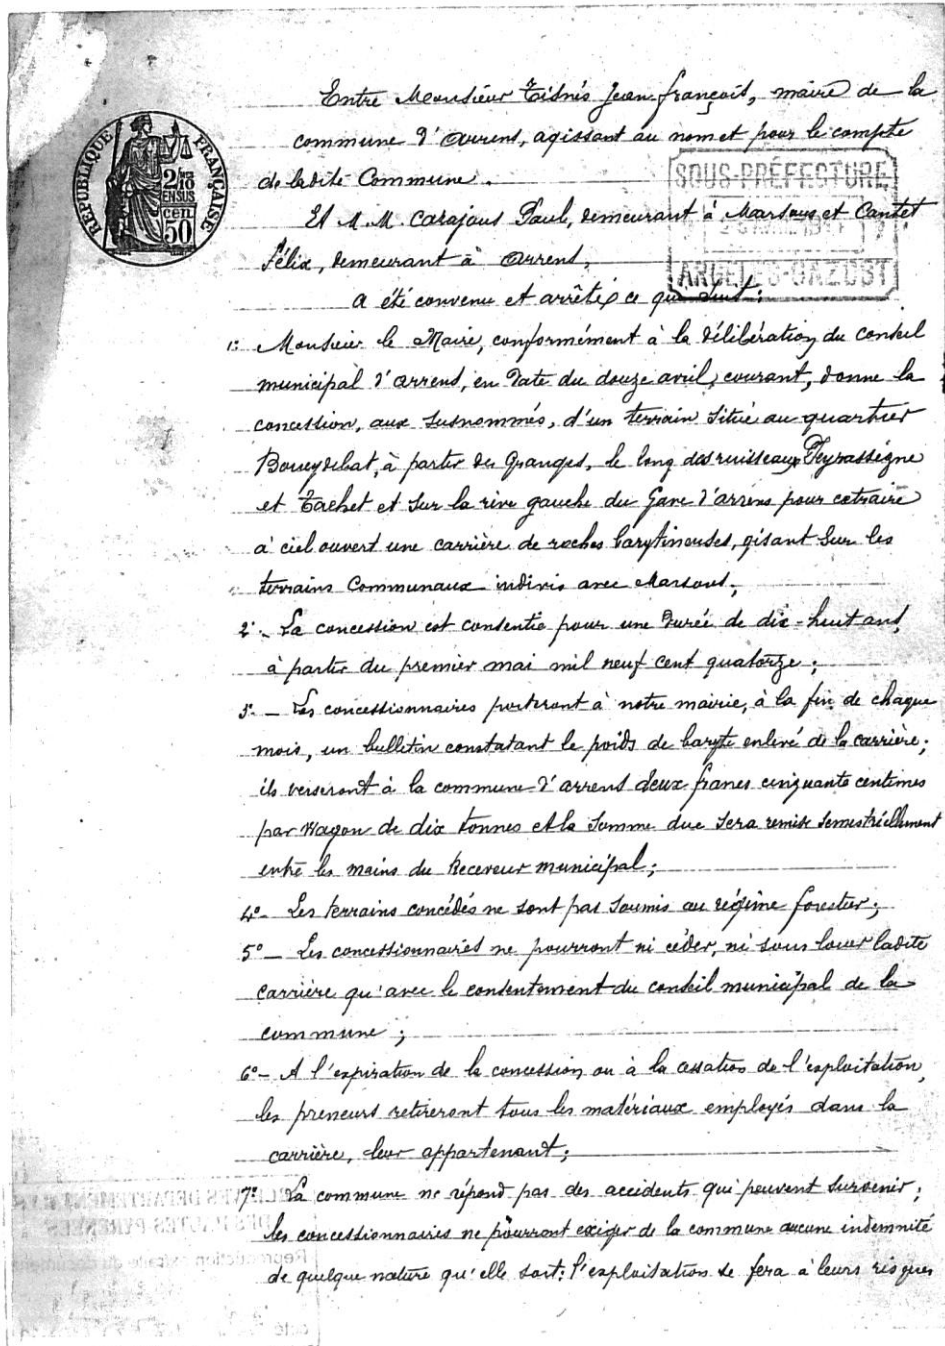 Entre Monsieur Tisnès Jean-françois, maire de la
commune d'Arrens, agissant au nom et pour le compte
de ladite Commune.
Et M. M. Carajous Paul, demeurant à Marsous et Cantet
Félix, demeurant à Arrens,
a été convenu et arrêté ce qui suit:
1: Monsieur le Maire, conformément à la délibération du conseil
municipal d'arrens, en date du douze avril, courant, donne la
concession, aux susnommés, d'un terrain situé au quartier
Boueydebat, à partir des Granges, le long des ruisseaux Peyrassègne
et Tachet et sur la rive gauche du Gave d'arrens pour extraire
à ciel ouvert une carrière de roches barytineuses, gisant sur les
terrains Communaux indivis avec Marsous;
2: - La concession est consentie pour une durée de dix-huit ans,
à partir du premier mai mil neuf cent quatorze;
3: - Les concessionnaires porteront à notre mairie, à la fin de chaque
mois, un bulletin constatant le poids de baryte enlevé de la carrière;
ils verseront à la commune d'arrens deux francs cinquante centimes
par wagon de dix tonnes et la somme due sera remise semestriellement
entre les mains du Receveur municipal;
4°- Les terrains concédés ne sont pas soumis au régime forestier;
5° - Les concessionnaires ne pourront ni céder, ni sous louer ladite
carrière qu'avec le consentement du conseil municipal de la
commune;
6°- A l'expiration de la concession ou à la cessation de l'exploitation,
les preneurs retireront tous les matériaux employés dans la
carrière, leur appartenant;
7° La commune ne répond pas des accidents qui peuvent survenir;
les concessionnaires ne pourront exiger de la commune aucune indemnité
de quelque nature qu'elle soit: l'exploitation se fera à leurs risques
RÉPUBLIQUE FRANÇAISE
2/10
EN SUS
cen
50
SOUS-PRÉFECTURE
ARGELÈS-GAZOST
ARCHIVES DÉPARTEMENTALES
DES HAUTES PYRÉNÉES
Reproduction extraite du document